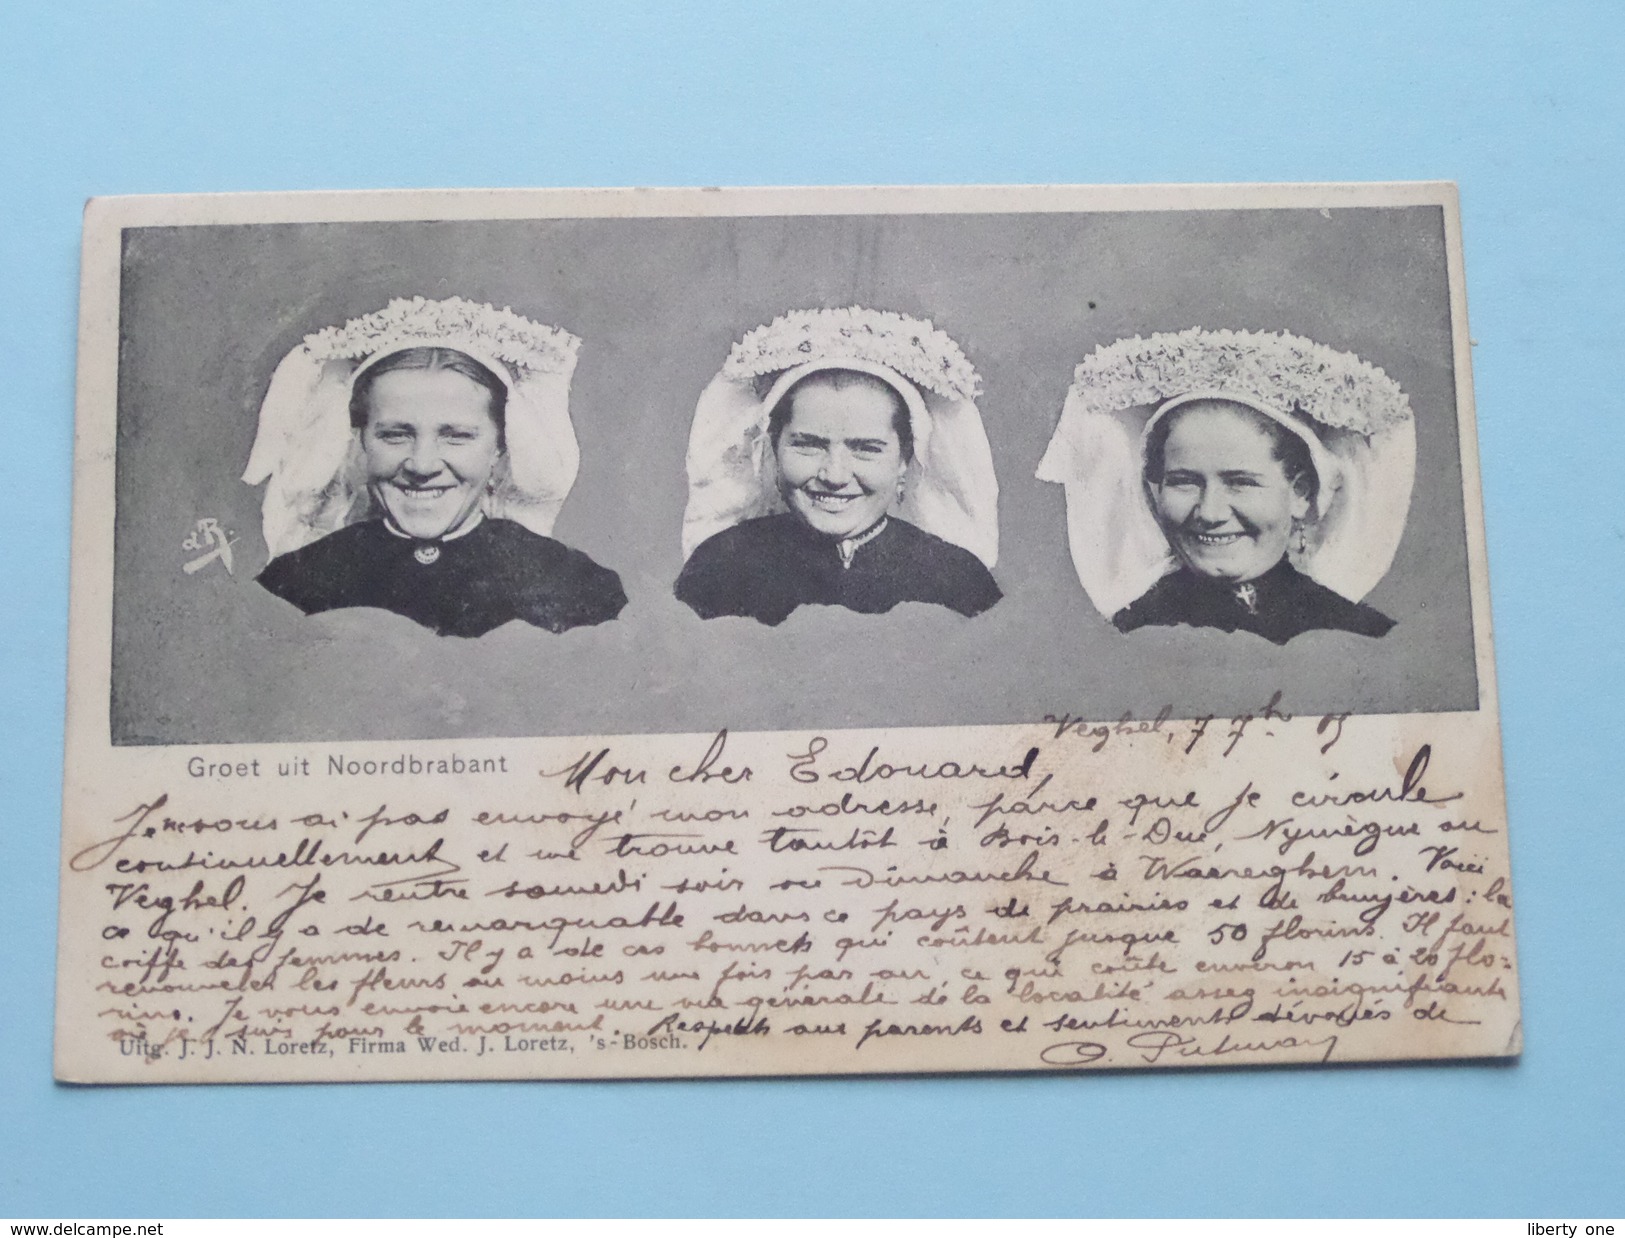 d'R.
Veghel, 7 7h 05
Groet uit Noordbrabant
Mon cher Edouard,
Je ne vous ai pas envoyé mon adresse, parce que je circule
continuellement et me trouve tantôt à Bois-le-Duc, Nymègue ou
Veghel. Je rentre samedi soir ou dimanche à Waereghem. Voici
ce qu'il y a de remarquable dans ce pays de prairies et de bruyères: la
coiffe des femmes. Il y a de ces bonnets qui coûtent jusque 50 florins. Il faut
renouveler les fleurs au moins une fois par an, ce qui coûte environ 15 à 20 flo=
rins. Je vous envoie encore une vue générale de la localité assez insignifiante
où je suis pour le moment. Respects aux parents et sentiments dévoués de
Uitg. J. J. N. Loretz, Firma Wed. J. Loretz, 's-Bosch.
www.delcampe.net
liberty_one